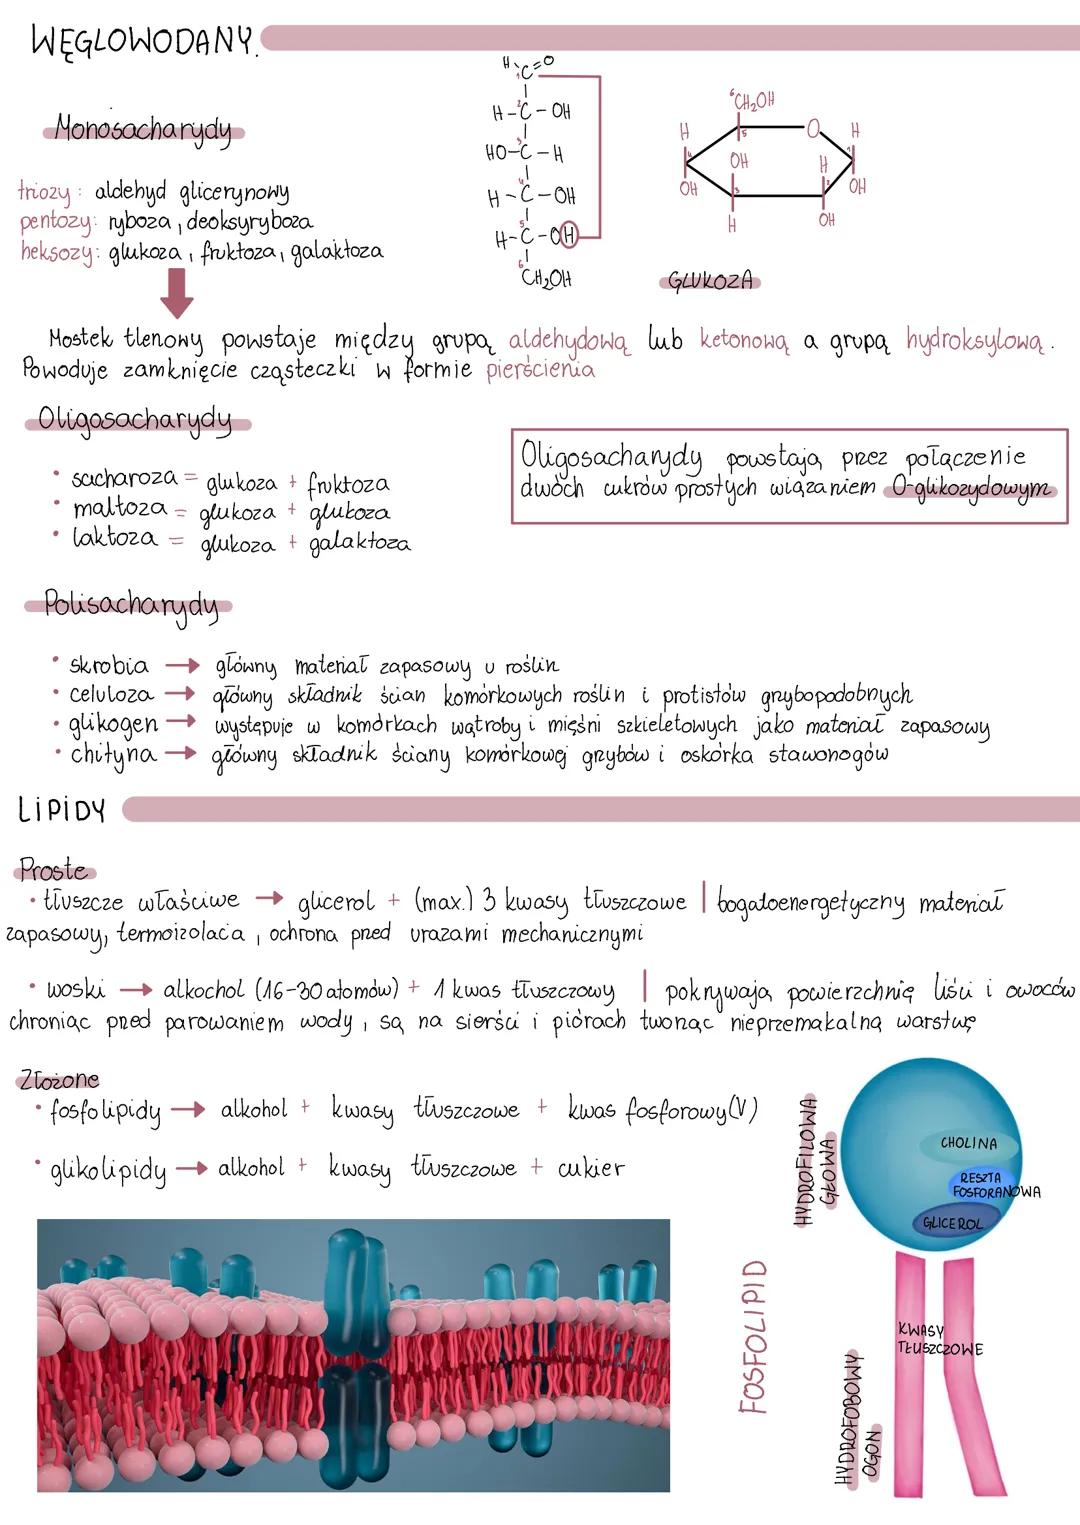 WĘGLOWODANY.
Monosacharydy
triozy: aldehyd glicerynowy
pentozy: ryboza, deoksyryboza
heksozy: glukoza, fruktoza, galaktoza
H C=O
1
H-C-OH
2
HO-C-H
3
H-C-OH
4
H-C-OH
5
CH₂OH
6
⁶CH₂OH
H 5 O H
4 OH H 1
OH 3 2 OH
H OH
GLUKOZA
Mostek tlenowy powstaje między grupą aldehydową lub ketonową a grupą hydroksylową.
Powoduje zamknięcie cząsteczki w formie pierścienia
Oligosacharydy
• sacharoza = glukoza + fruktoza
• maltoza = glukoza + glukoza
• laktoza = glukoza + galaktoza
Oligosacharydy powstają przez połączenie
dwóch cukrów prostych wiązaniem O-glikozydowym
Polisacharydy
• skrobia → główny materiał zapasowy u roślin
• celuloza → główny składnik ścian komórkowych roślin i protistów grzybopodobnych
• glikogen → występuje w komórkach wątroby i mięśni szkieletowych jako materiał zapasowy
• chityna → główny składnik ściany komórkowej grzybów i oskórka stawonogów
LIPIDY
Proste
• tłuszcze właściwe → glicerol + (max.) 3 kwasy tłuszczowe | bogatoenergetyczny materiał
zapasowy, termoizolacia, ochrona przed urazami mechanicznymi
• woski → alkochol (16-30 atomów) + 1 kwas tłuszczowy | pokrywają powierzchnię liści i owoców
chroniąc przed parowaniem wody, są na sierści i piórach tworząc nieprzemakalną warstwę
Złożone
• fosfolipidy → alkohol + kwasy tłuszczowe + kwas fosforowy(V)
• glikolipidy → alkohol + kwasy tłuszczowe + cukier
HYDROFILOWA
GŁOWA
CHOLINA
RESZTA
FOSFORANOWA
GLICEROL
FOSFOLIPID
KWASY
TŁUSZCZOWE
HYDROFOBOWY
OGON